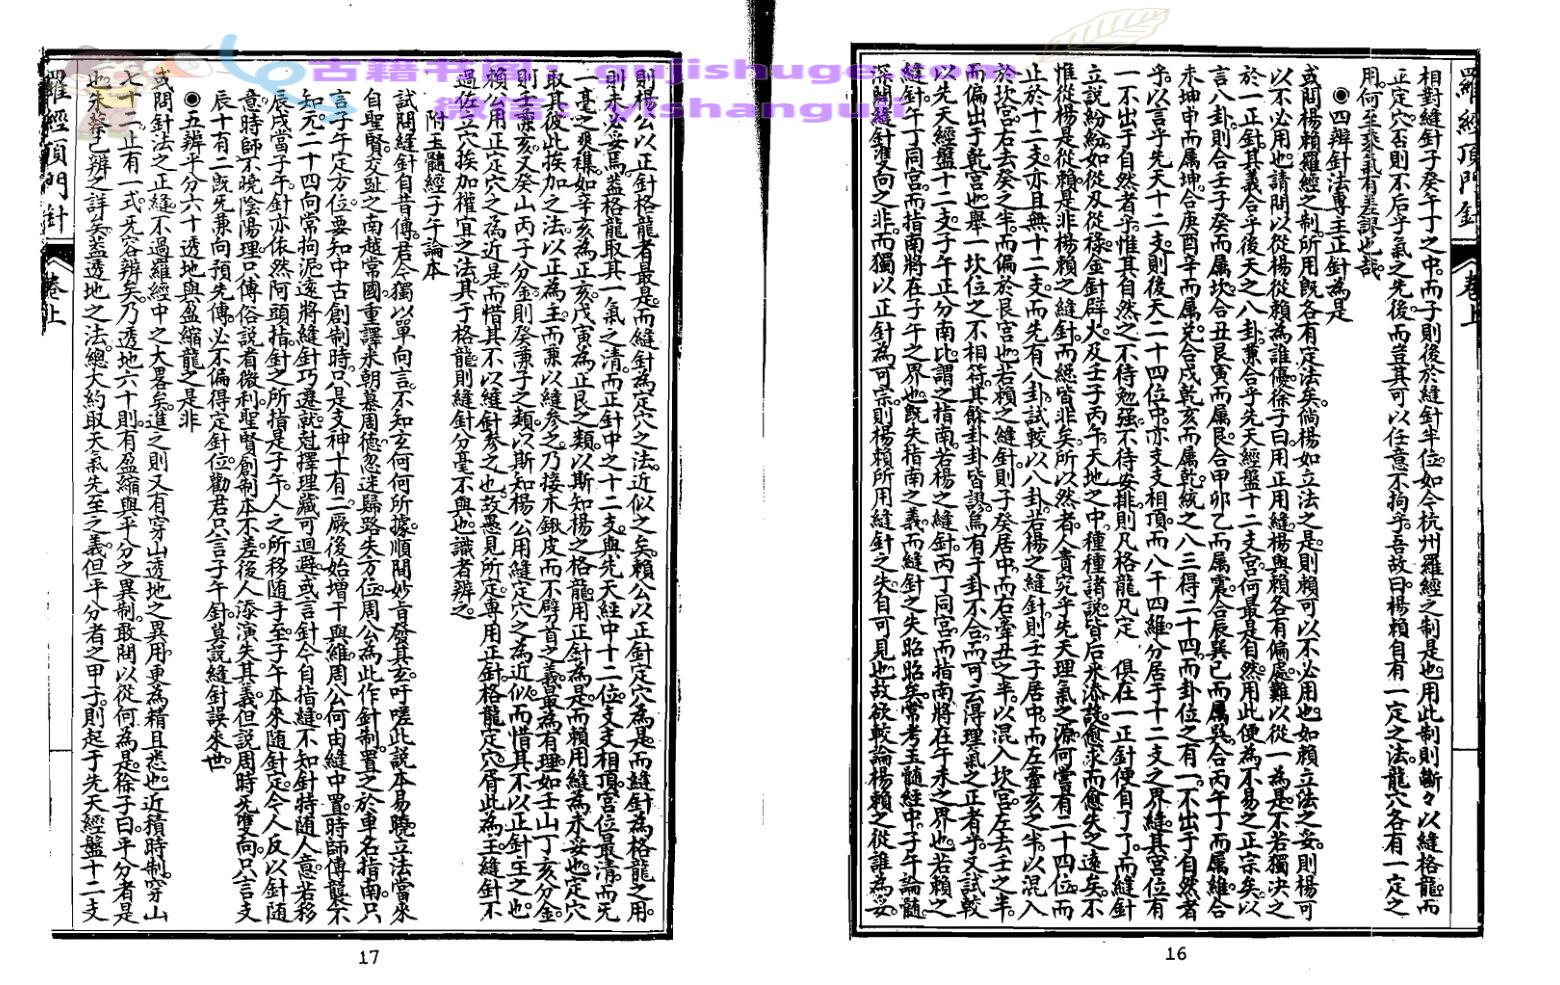 羅經頂門針 卷上
相對縫針子癸午丁之中。而子則後於縫針半位。如今杭州羅經之制是也。用此制則斷々以縫格龍。而
正定穴。否則不后乎氣之先後。而豈其可以任意不拘乎。吾故曰楊賴自有一定之法。龍穴各有一定之
用。何至乘氣有差謬也哉
◉四辨針法專主正針為是
或問楊賴羅經之制。所用既各有定法矣。倘楊如立法之是。則賴可以不必用也。如賴立法之妥。則楊可
以不必用也。請問以從楊從賴為誰優。徐子曰。用正用縫。楊與賴各有偏處。難以從一為是。不若獨決之
於一正針。其義合乎後天之八卦。兼合乎先天經盤十二支宮。何最是自然。用此便為不易之正宗矣。以
言八卦。則合壬子癸而属坎。合丑艮寅而属艮。合甲卯乙而属震。合辰巽巳而属巽。合丙午丁而属離。合
未坤申而属坤。合庚酉辛而属兌。合戌乾亥而属乾。統之八三得二十四。而卦位之有一。不出于自然者
乎。以言乎先天十二支。則後天二十四位中。亦支支相頂。而八干四維。分居于十二支之界縫。其宮位有
一不出于自然者乎。惟其自然之不待勉强。不待安排。則凡格龍凡定 俱在一正針便自了了。而縫針
立說紛紛。如從及從祿。金針闢火。及壬子丙午。天地之中種種諸說。皆后来添設。愈求而愈失之遠矣。不
惟從楊是從賴是非。楊賴之縫針。而總皆非矣。所以然者。人貴究乎先天理氣之源。何嘗有二十四位。而
止於十二支。亦且無十二支。而先有八卦。試較以八卦。若楊之縫針。則壬子居中。而左牽亥之半。以混入
於坎宮。右去癸之半。而偏於艮宮也。若賴之縫針。則子癸居中。而右牽丑之半。以混入坎宮。左去壬之半。
而偏出于乾宮也。舉一坎位之不相符。其餘卦卦皆謬。焉有于卦不合。而可云得理氣之正者乎。又試較
以先天經盤十二支。子午正分南北。謂之指南。若楊之縫針。丙丁同宮。而指南將在午未之界也。若賴之
縫針。午丁同宮。而指南將在子午之界也。既失指南之義。而縫針之失昭昭矣。常考玉髓經中。子午論髓。
深闢縫針雙向之非。而獨以正針為可宗。則楊賴所用縫針之失自可見也。故欲較論楊賴之從誰為妥。
16
則楊公以正針格龍者最是。而縫針為定穴之法近似之矣。賴公以正針定穴為是。而縫針為格龍之用。
則未必妥焉。蓋格龍取其一氣之清。而正針中之十二支。與先天経中十二位。支支相頂。宮位最清。而无
一毫之爽襍。如辛亥為正亥。戊寅為正艮之類。以斯知楊之格龍用正針為是。而賴用縫為未妥也。定穴
取其彼此挨加之法。以正為主。而兼以縫參之。乃接木鍬皮而不劈首之義。最為有理。如壬山丁亥分金。
則壬兼亥。又癸山丙子分金。則癸兼子之類。以斯知楊公用縫定穴之為近似。而惜其不以正針主之也。
賴公用正定穴之為近是。而惜其不以縫針參之也。故愚見所定。專用正針格龍定穴。胥此為主。縫針不
過佐立穴挨加權宜之法。其于格龍。則縫針分毫不與也。識者辨之。
附玉髓經子午論本
試問縫針自昔傳。君今獨以單向言。不知玄何何所據。順聞妙旨發其玄。吁嗟此說本易曉。立法當來
自聖賢。交趾之南越常國。重譯来朝慕周德。忽迷歸路失方位。周公為此作針制。置之於車名指南。只
言子午定方位。要知中古創制時。只是支神十有二。厥後始增干與維。周公何由縫中置。時師傳襲不
知元。二十四向常拘泥。遂將縫針巧遷就。尅擇理藏可迴避。或言針合自指縫。不知針特随人意。若移
辰戌當子午。針亦依然阿頭指。針之所指是子午。人之所移随手至。子午本來随針定。今人反以針随
意。時師不曉陰陽理。只傳俗說省微利。聖賢創制本不差。後人添演失其義。但說周時无雙向。只言支
辰十有二。既无兼向預先傳。必不偏得定針位。勸君只言子午針。莫說縫針誤來世。
◉五辨平分六十透地與盈縮龍之是非
或問針法之正縫。不過羅經中之大畧矣。進之則又有穿山透地之異用。更為精且悉也。近積時制穿山
七十二。止有一式。无容辨矣。乃透地六十。則有盈縮與平分之異制。敢問以從何為是。徐子曰。平分者是
也。朱蔡已辨之詳矣。蓋透地之法。總大約取天氣先至之義。但平分者之甲子。則起于先天經盤十二支
羅經頂門針 卷上
17
古籍书阁：gujishuge.com
微信：yishangui